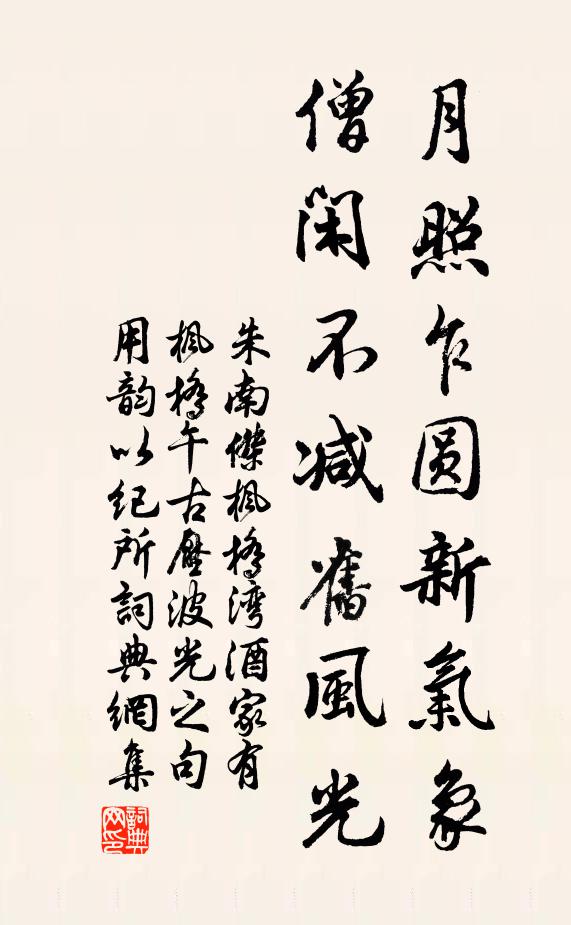 月照乍圓新氣象
僧閑不減舊風光
朱南傑楓橋灣酒家有
楓橋午古壓波光之句
用韵以紀所詞典網集
詞典網印